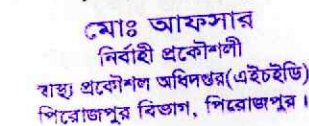 মোঃ আফসার
নির্বাহী প্রকৌশলী
স্বাস্থ্য প্রকৌশল অধিদপ্তর(এইচইডি)
পিরোজপুর বিভাগ, পিরোজপুর।